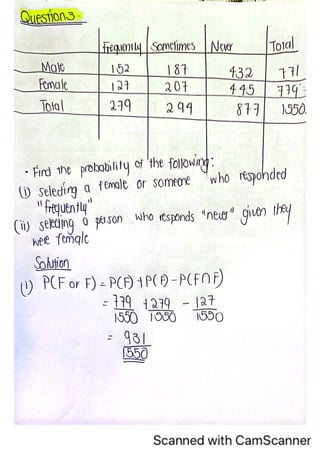 Question 3
frequently Sometimes Never Total
Male 152 187 432 771
Female 127 207 445 779
Total 279 294 877 1550
• Find the probability of the following:
(i) selecting a female or someone who responded
"frequently"
(ii) selecting a person who responds "never" given they
were female
Solution
(i) P(F or F) = P(F) + P(F) - P(F∩F)
= 779/1550 + 279/1550 - 127/1550
= 931/1550
Scanned with CamScanner